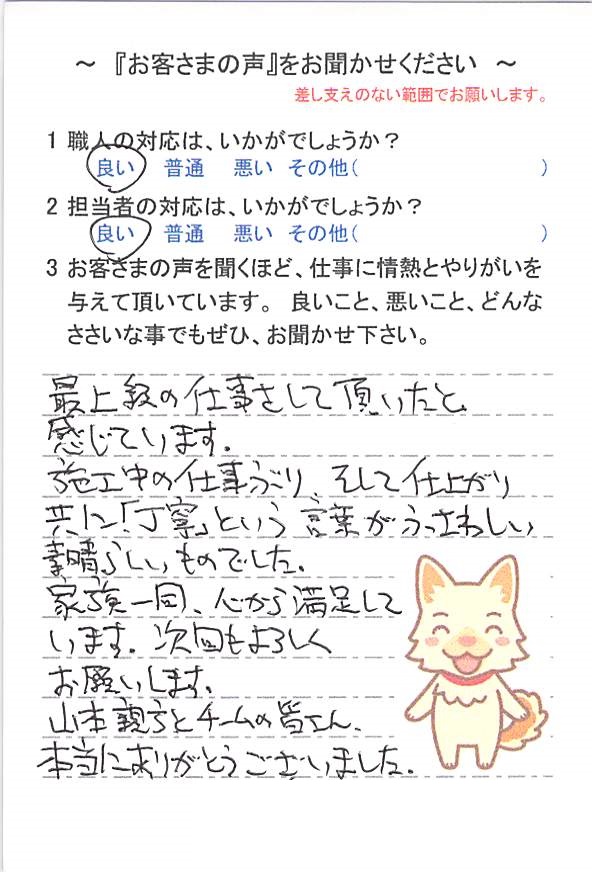 ～ 『お客さまの声』をお聞かせください ～
差し支えのない範囲でお願いします。
1 職人の対応は、いかがでしょうか？
良い 普通 悪い その他( )
2 担当者の対応は、いかがでしょうか？
良い 普通 悪い その他( )
3 お客さまの声を聞くほど、仕事に情熱とやりがいを
与えて頂いています。 良いこと、悪いこと、どんな
ささいな事でもぜひ、お聞かせ下さい。
最上級の仕事をして頂いたと
感じています。
施工中の仕事ぶり、そして仕上がり
共に「丁寧」という言葉がふさわしい
素晴らしいものでした。
家族一同、心から満足して
います。次回もよろしく
お願いします。
山本親方とチームの皆さん、
本当にありがとうございました。